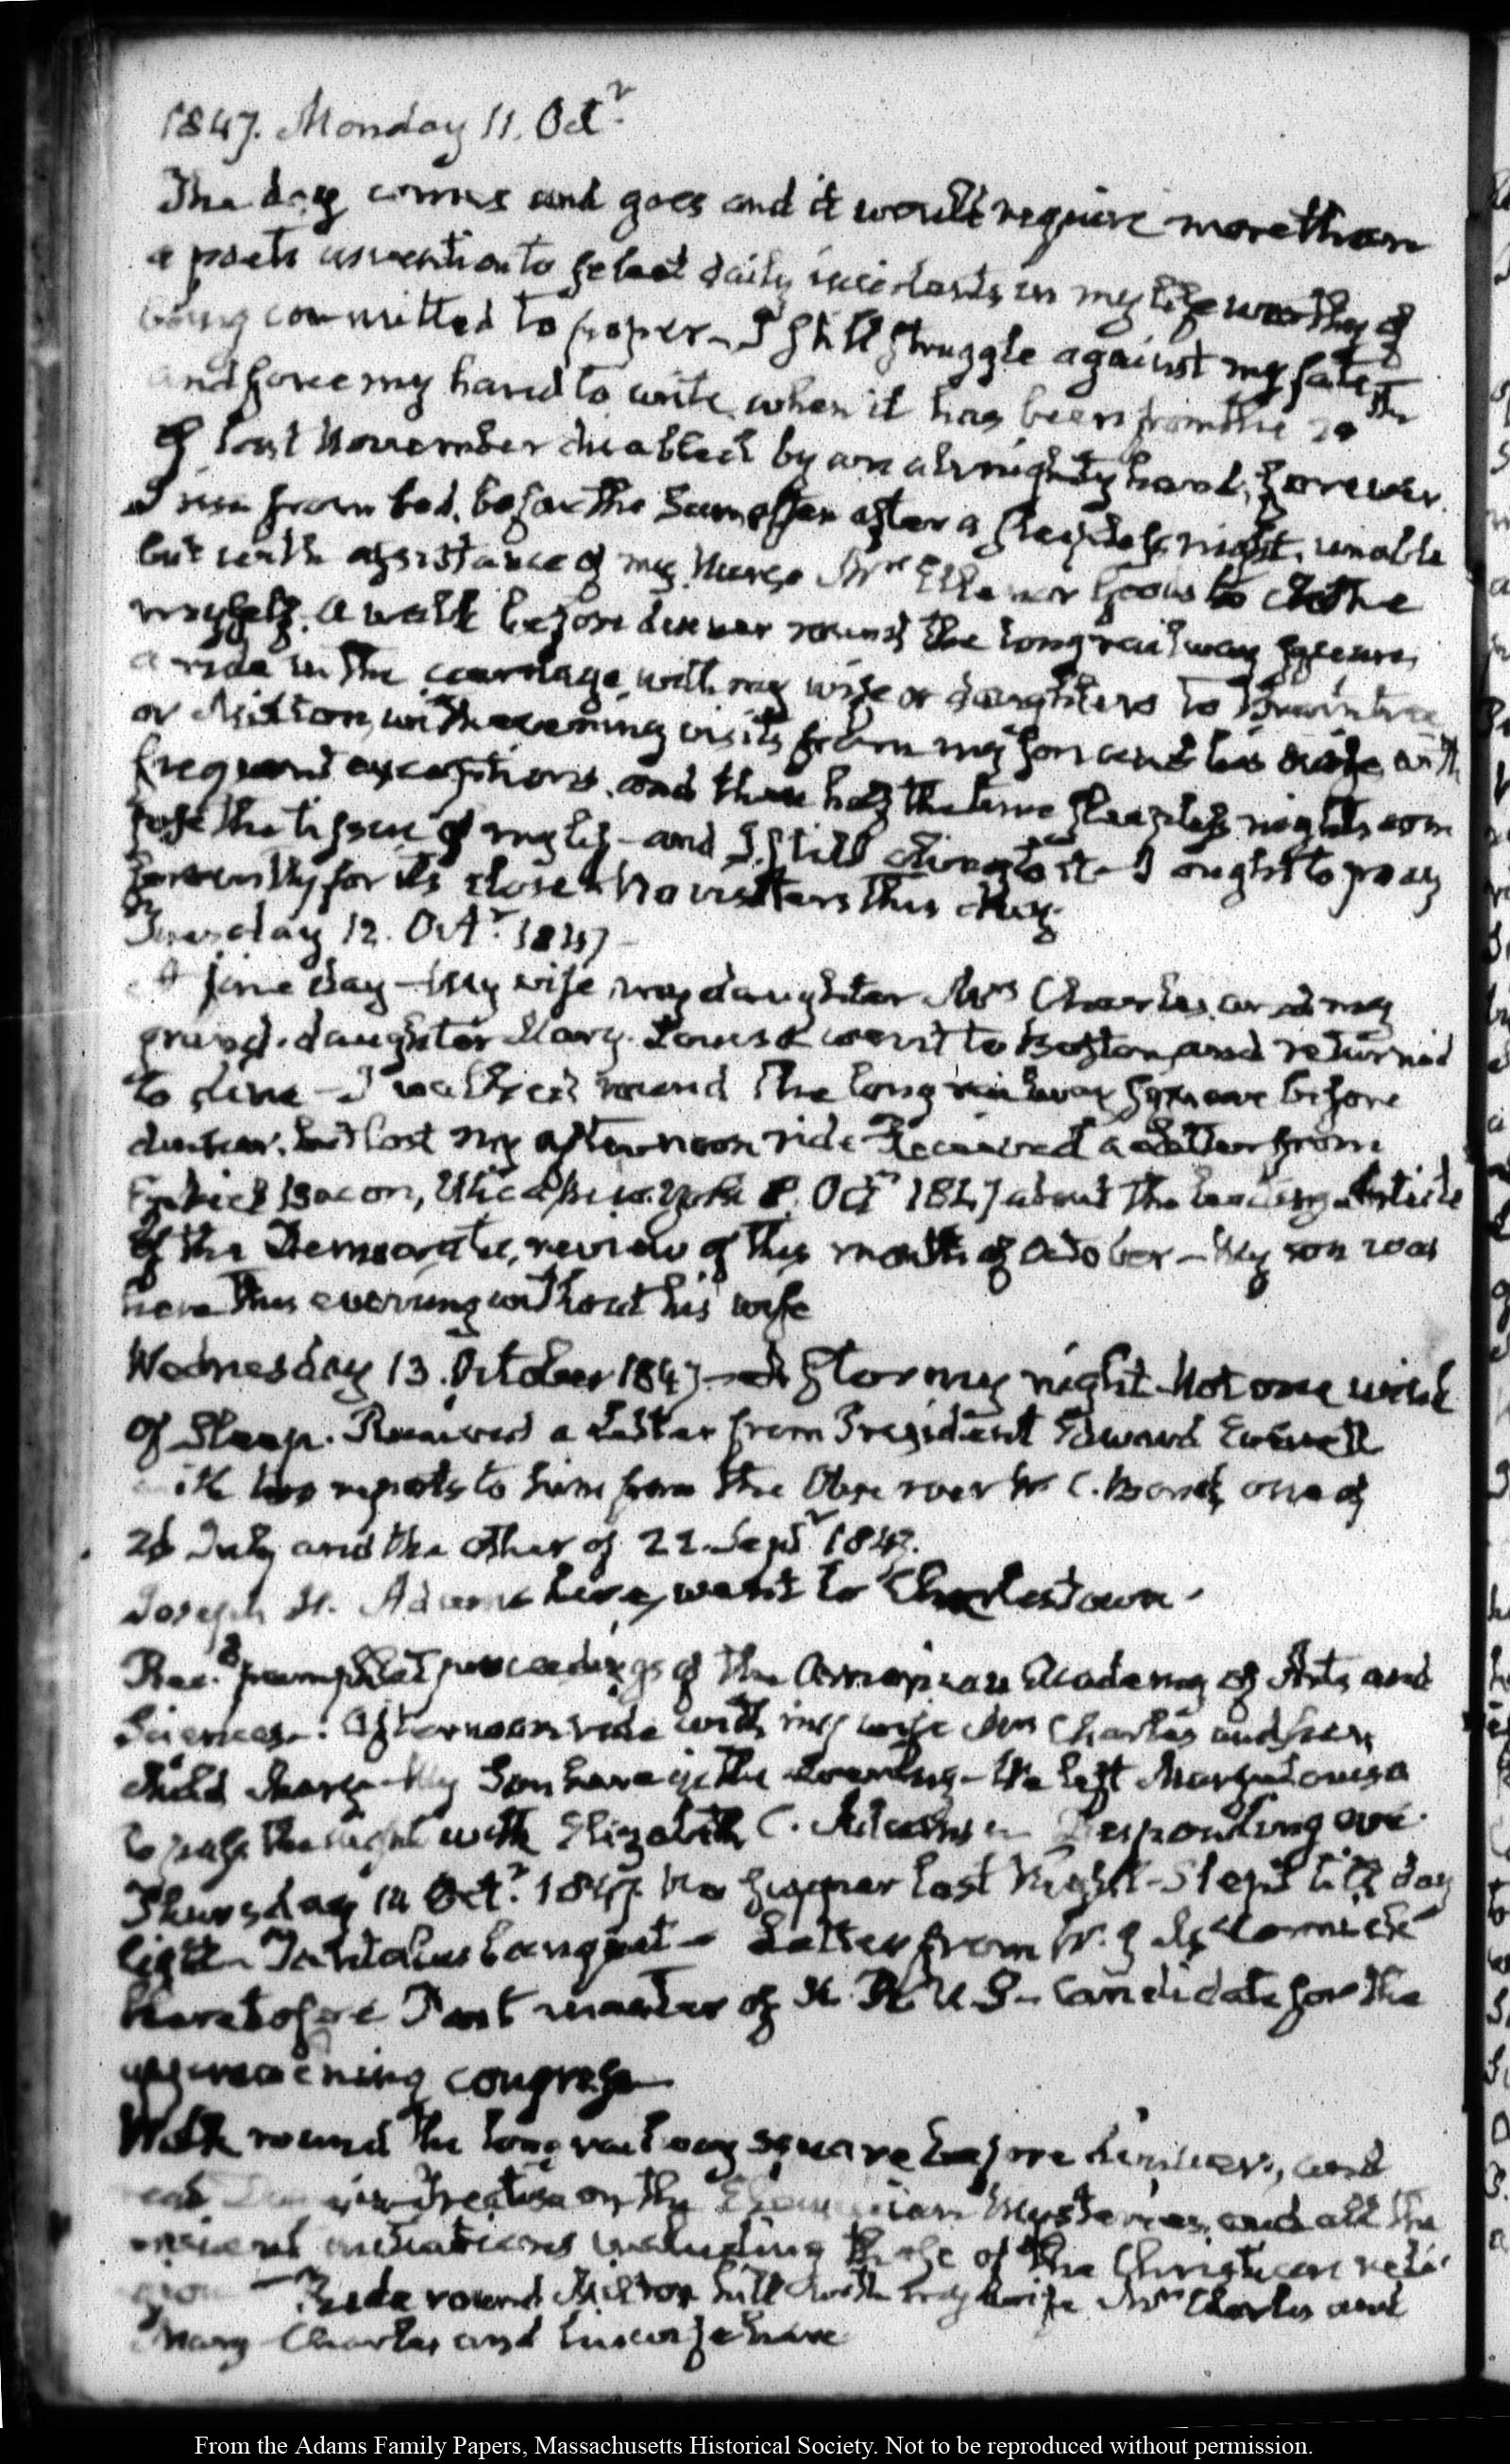 1847. Monday 11. Octr.
The day comes and goes and it would require more than
a poets invention to select daily incidents in my life worthy of
being committed to paper – I still struggle against my fate
and force my hand to write when it has been from the 20th
of last November disabled by an almighty hand, forever.
I rise from bed, before the Sun often after a sleepless night, unable
but with assistance of my Nurse Mrs to clothe
myself. a walk before dinner round the long railway square,
a ride in the carriage with my wife or daughters to Braintree
or Milton, with evening visits from my son and his wife, with
frequent exceptions, and then half the time sleepless nights com
pose the tissue of my life – and I still cling to it – I ought to pray
fervently for its close – No visitors this day.
Tuesday 12. Octr. 1847 –
A fine day – My wife, my daughter Mrs Charles, and my
grand-daughter Mary-Louisa went to Boston, and returned
to dine – I walked round the long railway square before
dinner. but lost my afternoon ride – Received a letter from
Ezekiel Bacon, Utica, New-York 8. Octr 1847 about the leading Article
of the Democratic, review of this month of October – My son was
here this evening without his wife
Wednesday 13. October 1847 – A stormy night – Not one wink
of Sleep. Received a Letter from President Edward Everett
with two reports to him from the Observer W. C. Bond, one of
July and the other of Septr 1847.
Joseph H. Adams here, went to Charlestown.
Recd pamphlet proceedings of the American Academy of Arts and
Sciences. Afternoon ride with my wife Mrs Charles and her
child Mary – My Son here in the evening – He left Mary Louisa
to pass the night with Elizabeth C. Adams –
Thursday 14 Octr. 1847. No supper last Night – Slept till day
light – Tantalus banquet – Letter from McCormick
heretofore Postmaster of H. R. U.S. – Candidate for the
approaching congress –
Walk round the long railway square before dinner, and
Treatise on the Mysteries, and all the
ancient initiations including those of the Christian reli-
gion – Ride round Milton hill with my wife Mrs Charles and
Mary – Charles and his wife here